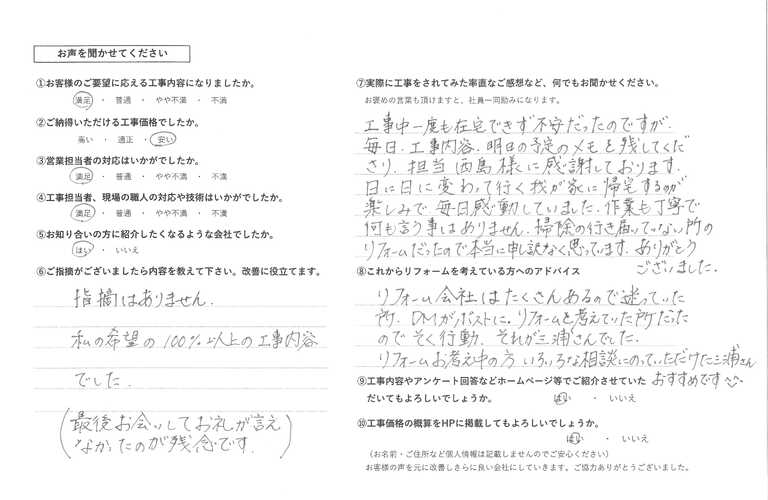 お声を聞かせてください
①お客様のご要望に応える工事内容になりましたか。
満足 ・ 普通 ・ やや不満 ・ 不満
②ご納得いただける工事価格でしたか。
高い ・ 適正 ・ 安い
③営業担当者の対応はいかがでしたか。
満足 ・ 普通 ・ やや不満 ・ 不満
④工事担当者、現場の職人の対応や技術はいかがでしたか。
満足 ・ 普通 ・ やや不満 ・ 不満
⑤お知り合いの方に紹介したくなるような会社でしたか。
はい ・ いいえ
⑥ご指摘がございましたら内容を教えて下さい。改善に役立てます。
指摘はありません.
私の希望の100%以上の工事内容
でした.
(最後お会いしてお礼が言え
なかったのが残念です.)
⑦実際に工事をされてみた率直なご感想など、何でもお聞かせください。
お褒めの言葉も頂けますと、社員一同励みになります。
工事中一度も在宅できず不安だったのですが.
毎日.工事内容.明日の予定のメモを残してくだ
さり.担当西島様に感謝しております.
日に日に変わって行く我が家に帰宅するのが
楽しみで毎日感動していました.作業も丁寧で
何も言う事はありません.掃除の行き届いていない所の
リフォームだったので本当に申し訳なく思っています.ありがとう
ございました.
⑧これからリフォームを考えている方へのアドバイス
リフォーム会社はたくさんあるので迷っていた
所.DMがポストに.リフォームを考えていた所だった
のでそく行動.それが三浦さんでした.
リフォームお考え中の方いろいろな相談にのっていただけた三浦さん
おすすめです
⑨工事内容やアンケート回答などホームページ等でご紹介させていた
だいてもよろしいでしょうか。 はい ・ いいえ
⑩工事価格の概算をHPに掲載してもよろしいでしょうか。
はい ・ いいえ
(お名前・ご住所など個人情報は記載しませんのでご安心ください)
お客様の声を元に改善しさらに良い会社にしていきます。ご協力ありがとうございました。